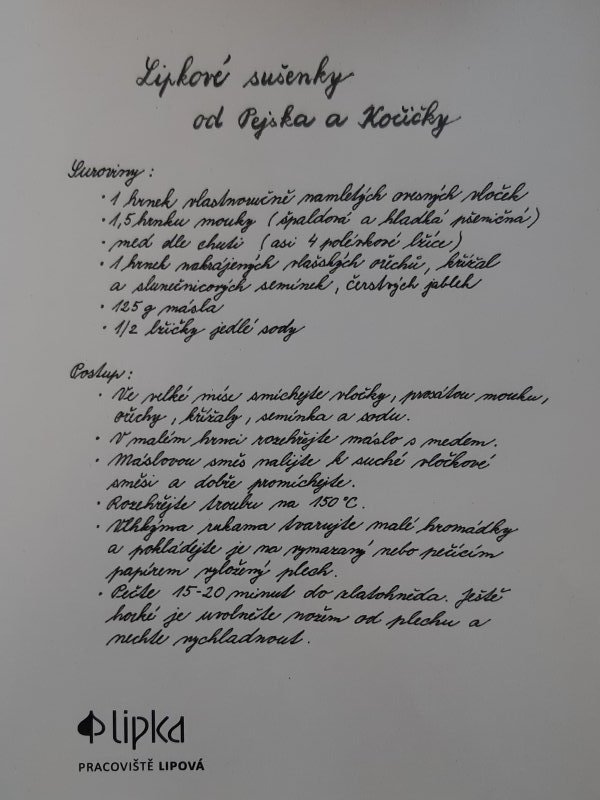 Lipkové sušenky
od Pejska a Kočičky
Suroviny:
· 1 hrnek vlastnoručně namletých ovesných vloček
· 1,5 hrnku mouky (špaldová a hladká pšeničná)
· med dle chuti (asi 4 polévkové lžíce)
· 1 hrnek nakrájených vlašských ořechů, křížal
a slunečnicových semínek, čerstvých jablek
· 125 g másla
· 1/2 lžičky jedlé sody
Postup:
· Ve velké míse smíchejte vločky, prosátou mouku,
ořechy, křížaly, semínka a sodu.
· V malém hrnci rozehřejte máslo s medem.
· Máslovou směs nalijte k suché vločkové
směsi a dobře promíchejte.
· Rozehřejte troubu na 150°C.
· Vlhkýma rukama tvarujte malé hromádky
a pokládejte je na vymazaný nebo pečícím
papírem vyložený plech.
· Pečte 15-20 minut do zlatohněda. Ještě
horké je uvolněte nožem od plechu a
nechte vychladnout.
lipka
PRACOVIŠTĚ LIPOVÁ